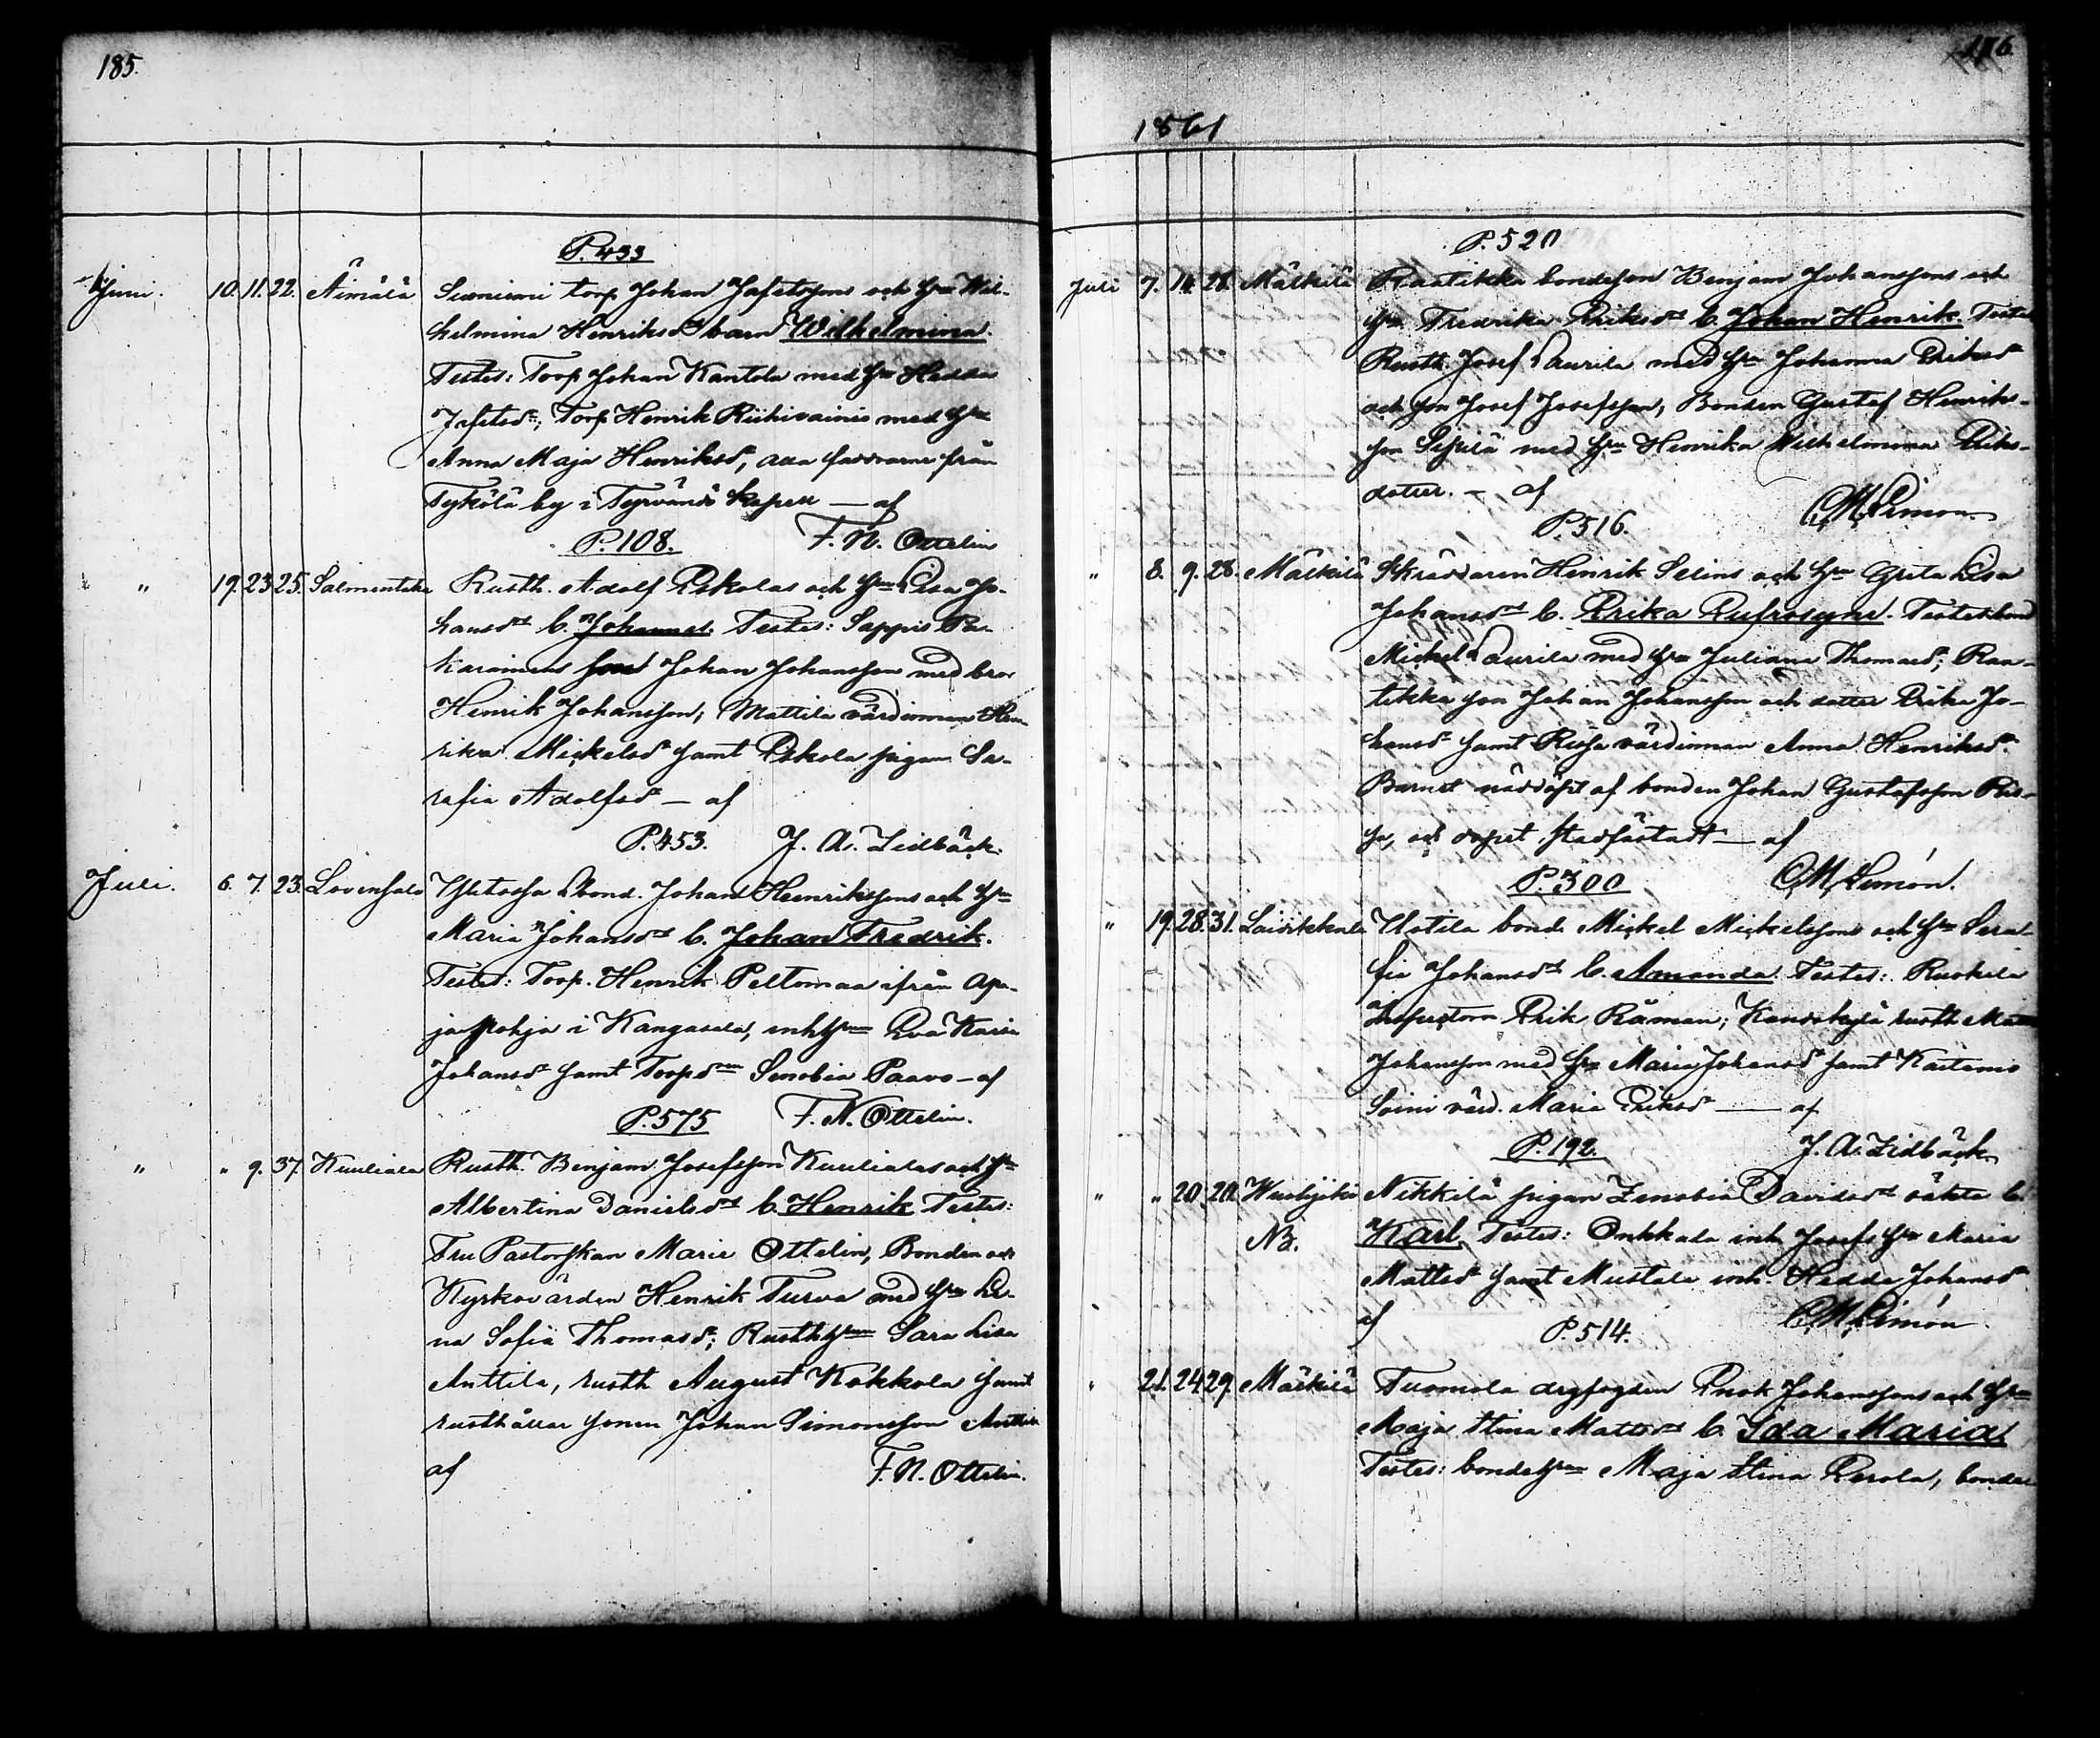 185.
P. 433
Juni. 10. 11. 22. Äimälä Torp Johan Jafetssons och h:u Wil-
helmina Henriksd:s barn Wilhelmina.
Testes: Torp Johan Kantola med h:u Hedda
Jafetsd:r; Torp Henrik Riihivainio med h:u
Anna Maja Henriksd:r, alla faddrarne från
Tykölä by i Tyrväntö Kapell — af
P. 108. F. N. Ottelin
" 19. 23. 25. Salmentaka Rusth. Adolf Eskolas och h:u Lisa Jo-
hansd:rs b. Johannes. Testes: Sappis
Johan Johansson med bror
Henrik Johansson; Mattila värdinnan Hen-
rika Mickelsd:r samt Eskola pigan Se-
rafia Adolfsd:r — af
P. 453. J. A. Lidbäck.
Juli. 6. 7. 23. Bond. Johan Henrikssons och h:u
Maria Johansd:rs b. Johan Fredrik.
Testes: Torp. Henrik Peltomaa ifrån
i Kangasala, inhh:un Eva Karin
Johansd:r samt Senobia Paavo — af
P. 575 F. N. Ottelin.
" " 9. 37. Kuuliala Rusth. Benjam. Josefsson Kuulialas och h:u
Albertina Danielsd:rs b. Henrik Testes:
Fru Pastorskan Marie Ottelin, Bonden och
Kyrkovärden Henrik Turva med h:u Le-
na Sofia Thomasd:r; Rusthh:un Sara Lisa
Anttila, rusth August Kokkola samt
rusthållar sonen Johan Simonsson Anttila
af F. N. Ottelin.
186.
1861
P. 520
Juli 7. 14. 28. Mälkilä Raatikka bondeson Benjam Johanssons och
h:u Fredrika Eriksd:s b. Johan Henrik. Testes
Rusth. Josef Laurila med h:u Johanna Eriksd:r
och son Josef Josefsson, Bonden Gustaf Henriks-
son Seppilä med h:u Henrika Wilhelmina Eriks-
dotter. — af
P. 516. C. M. Limón.
" 8. 9. 28. Mälkilä Skräddaren Henrik Selins och h:u Greta Lisa
Johansd:s b. Erika Eufrosyne. Testes: bond
Mickel Laurila med h:u Juliana Thomasd:r; Raa-
tikka son Johan Johansson och dotter Erika Jo-
hansd:r samt värdinnan Anna Henriksd:r.
Barnet nöddöpt af bonden Johan Gustafsson
och dopet stadfästadt — af
P. 300 C. M. Limón.
" 19. 28. 31. Laivikkala Uotila bond. Mickel Mickelssons och h:u Sera-
fia Johansd:s b. Amanda. Testes:
Inspectorn Erik Råman; rusth
Johansson med h:u Maria Johansd:r samt
Soini värd. Maria Eriksd:r — af
P. 192. J. A. Lidbäck.
" " 20. 20. Nikkilä pigan Zenobia Davidsd:s oäkta b.
NB. Karl. Testes: Onkkala inh. Josefs h:u Maria
Mattsd:r samt Mustala inh. Hedda Johansd:r
af P. 514. C. M. Limón.
" 21. 24. 29. Mälkilä Tuomola drgfogden Enok Johanssons och h:u
Maja Stina Mattsd:s b. Ida Maria
Testes: bondeh:un Maja Stina Perola, bonden